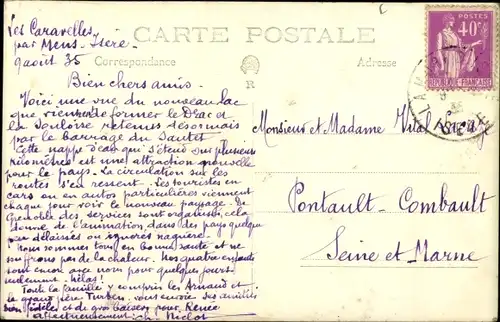 Les Caravelles
par Mens - Isère
9 août 35
CARTE POSTALE
Correspondance
Adresse
Bien chers amis.
Voici une vue du nouveau lac
que viennent de former le Drac et
la Souloise retenus désormais
par le barrage du Sautet
Cette nappe d'eau qui s'étend sur plusieurs
kilomètres est une attraction nouvelle
pour le pays. La circulation sur les
routes s'en ressent. Les touristes en
cars ou en autos particulières viennent
chaque jour voir le nouveau paysage. De
Grenoble des services sont organisés, cela
donne de l'animation dans des pays quelque
peu délaissés ou ignorés naguère.
Nous sommes tous en bonne santé et ne
souffrons pas de la chaleur. Nos quatre enfants
sont encore avec nous pour quelques jours
seulement. Hélas!
Toute la famille y compris les Arnaud et
le grand'père Turben, vous envoie ses amitiés
bien fidèles et de gros baisers pour Renée
affectueusement. Niclot
R
POSTES
40c
REPUBLIQUE FRANÇAISE
ISERE
Monsieur et Madame Vital
Pontault-Combault
Seine et Marne